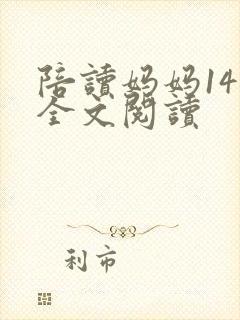 陪讀妈妈14
全文閱讀
利市